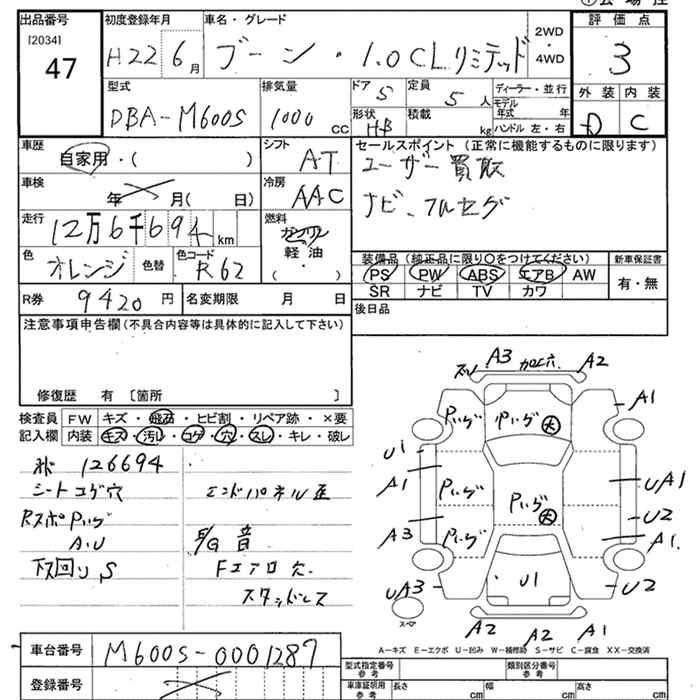 出品番号 初度登録年月 車名・グレード 2WD・4WD 評価点
[2034] 47 H22年 6月 ブーン・1.0CLリミテッド 3
型式 排気量 ドア 5 定員 5人 ディーラー・並行 外装 内装
DBA-M600S 1000cc 形状 HB 積載 kg モデル年式 年 ハンドル 左・右 D C
車歴 自家用・( ) シフト AT セールスポイント (正常に機能するものに限ります)
車検 年 月( 日) 冷房 AAC ユーザー買取
走行 12万6千694km 燃料 ガソリン 軽油 ( ) ナビ、フルセグ
色 オレンジ 色替 色コード R62 装備品 (純正品に限り○をつけてください) 新車保証書
PS PW ABS エアB AW 有・無
R券 9420円 名変期限 月 日 SR ナビ TV カワ
注意事項申告欄(不具合内容等は具体的に記入して下さい) 後日品
修復歴 有 〔箇所 〕
検査員記入欄 FW キズ・飛石・ヒビ割・リペア跡・×要
内装 キズ・汚レ・コゲ・穴・スレ・キレ・破レ
126694
シートコゲ穴 エンドパネル歪
E/G音
A.U Fエアロ穴
下回り,S スタッドレス
A3 加工穴 A2
A1
U1
A1 UA1
U2
A3 A1
UA3 U1 U2
スペア
A2 A2 A1
A−キズ E−エクボ U−凹み W−補修跡 S−サビ C−腐食 XX−交換済
車台番号 M600S-0001287 型式指定番号 参考 類別区分番号 参考
登録番号 車庫証明用 参考 長さ cm 幅 cm 高さ cm